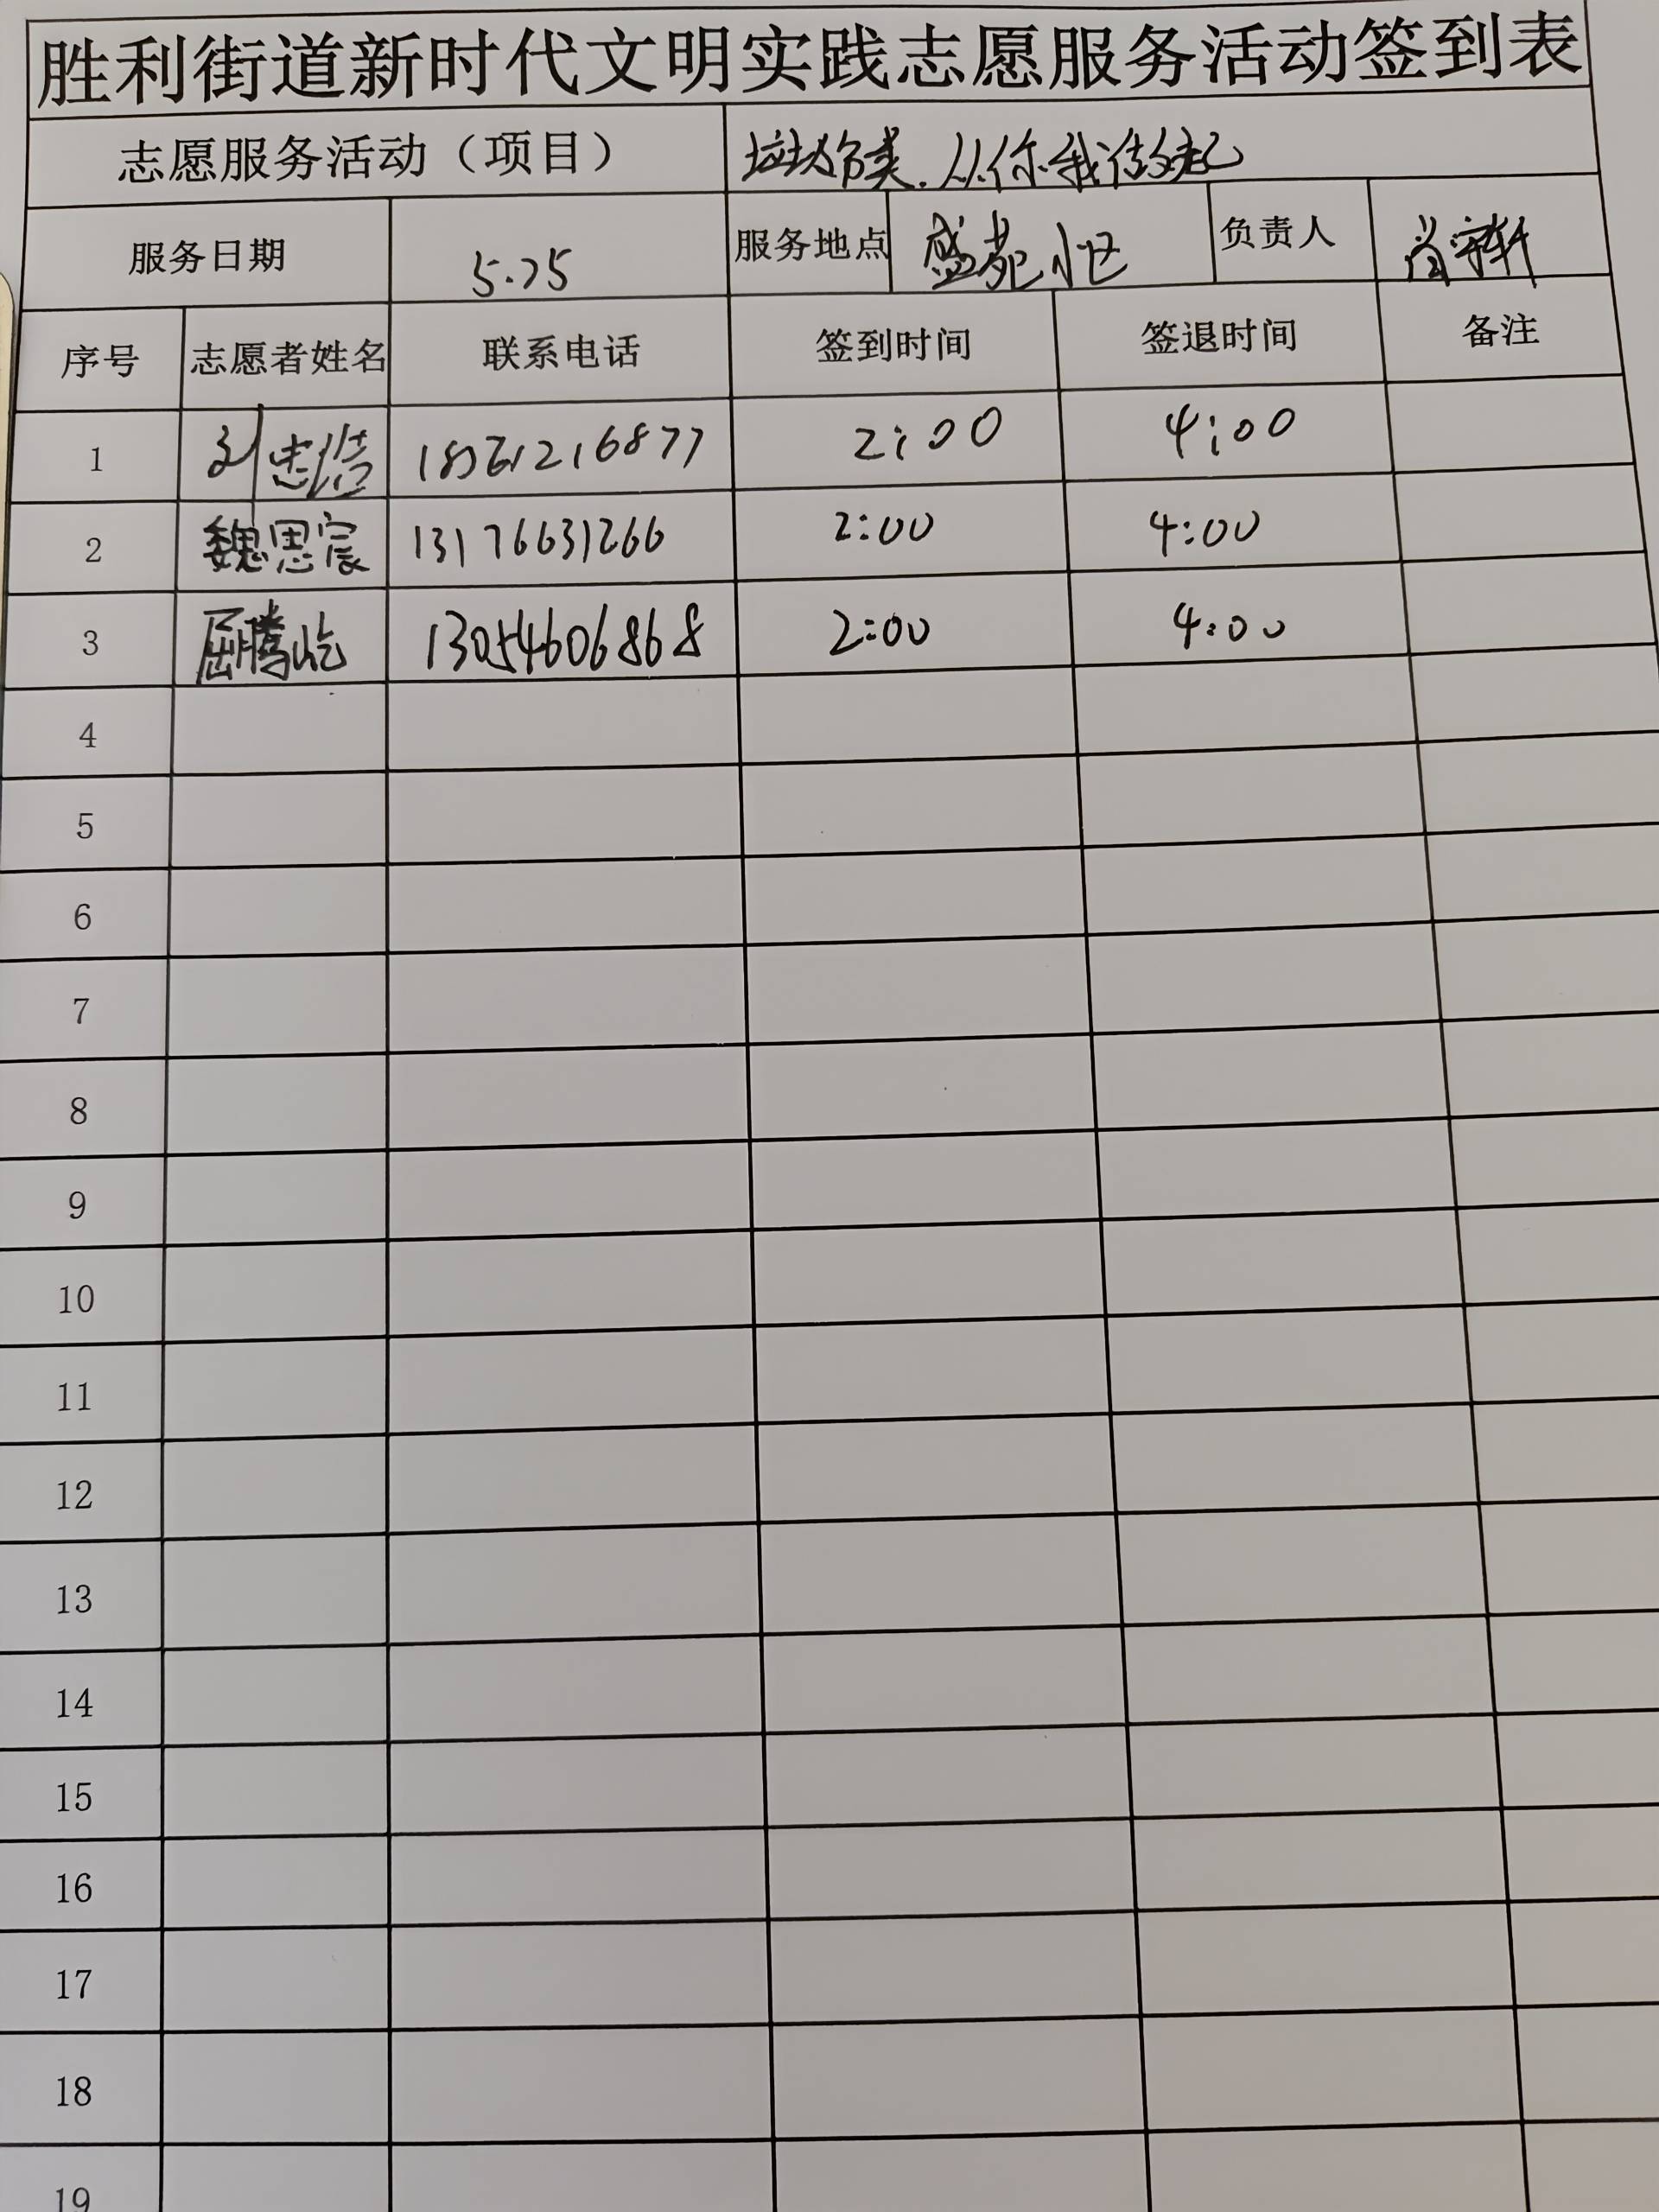 胜利街道新时代文明实践志愿服务活动签到表
志愿服务活动（项目） 垃圾分类.从你我做起
服务日期 5.25 服务地点 盛苑小区 负责人 肖宇轩
序号 志愿者姓名 联系电话 签到时间 签退时间 备注
1 刘忠浩 2:00 4:00
2 魏思宸 13176631266 2:00 4:00
3 屈腾屹 13054606868 2:00 4:00
4
5
6
7
8
9
10
11
12
13
14
15
16
17
18
19